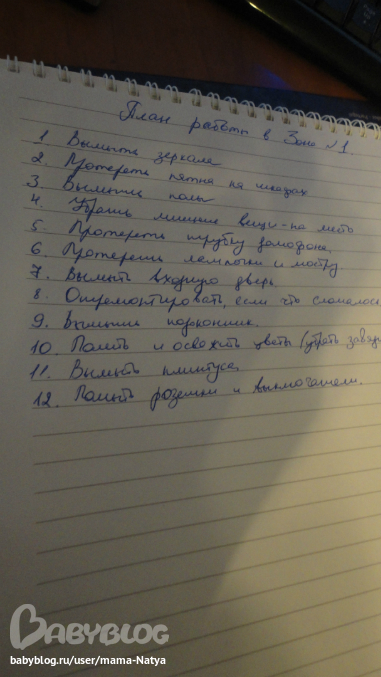 План работы в Зоне №1.
1 Вымыть зеркала
2. Протереть пятна на шкафах
3. Вымыть полы
4. Убрать лишние вещи - на место
5. Протереть трубку домофона.
6. Протереть лампочки и
7. Вымыть входную дверь.
8. Отремонтировать, если что сломалось
9. Вымыть подоконник.
10. Полить и освежить цветы (убрать
11. Вымыть плинтуса
12. Помыть розетки и выключатели.
BABYBLOG
babyblog.ru/user/mama-Natya